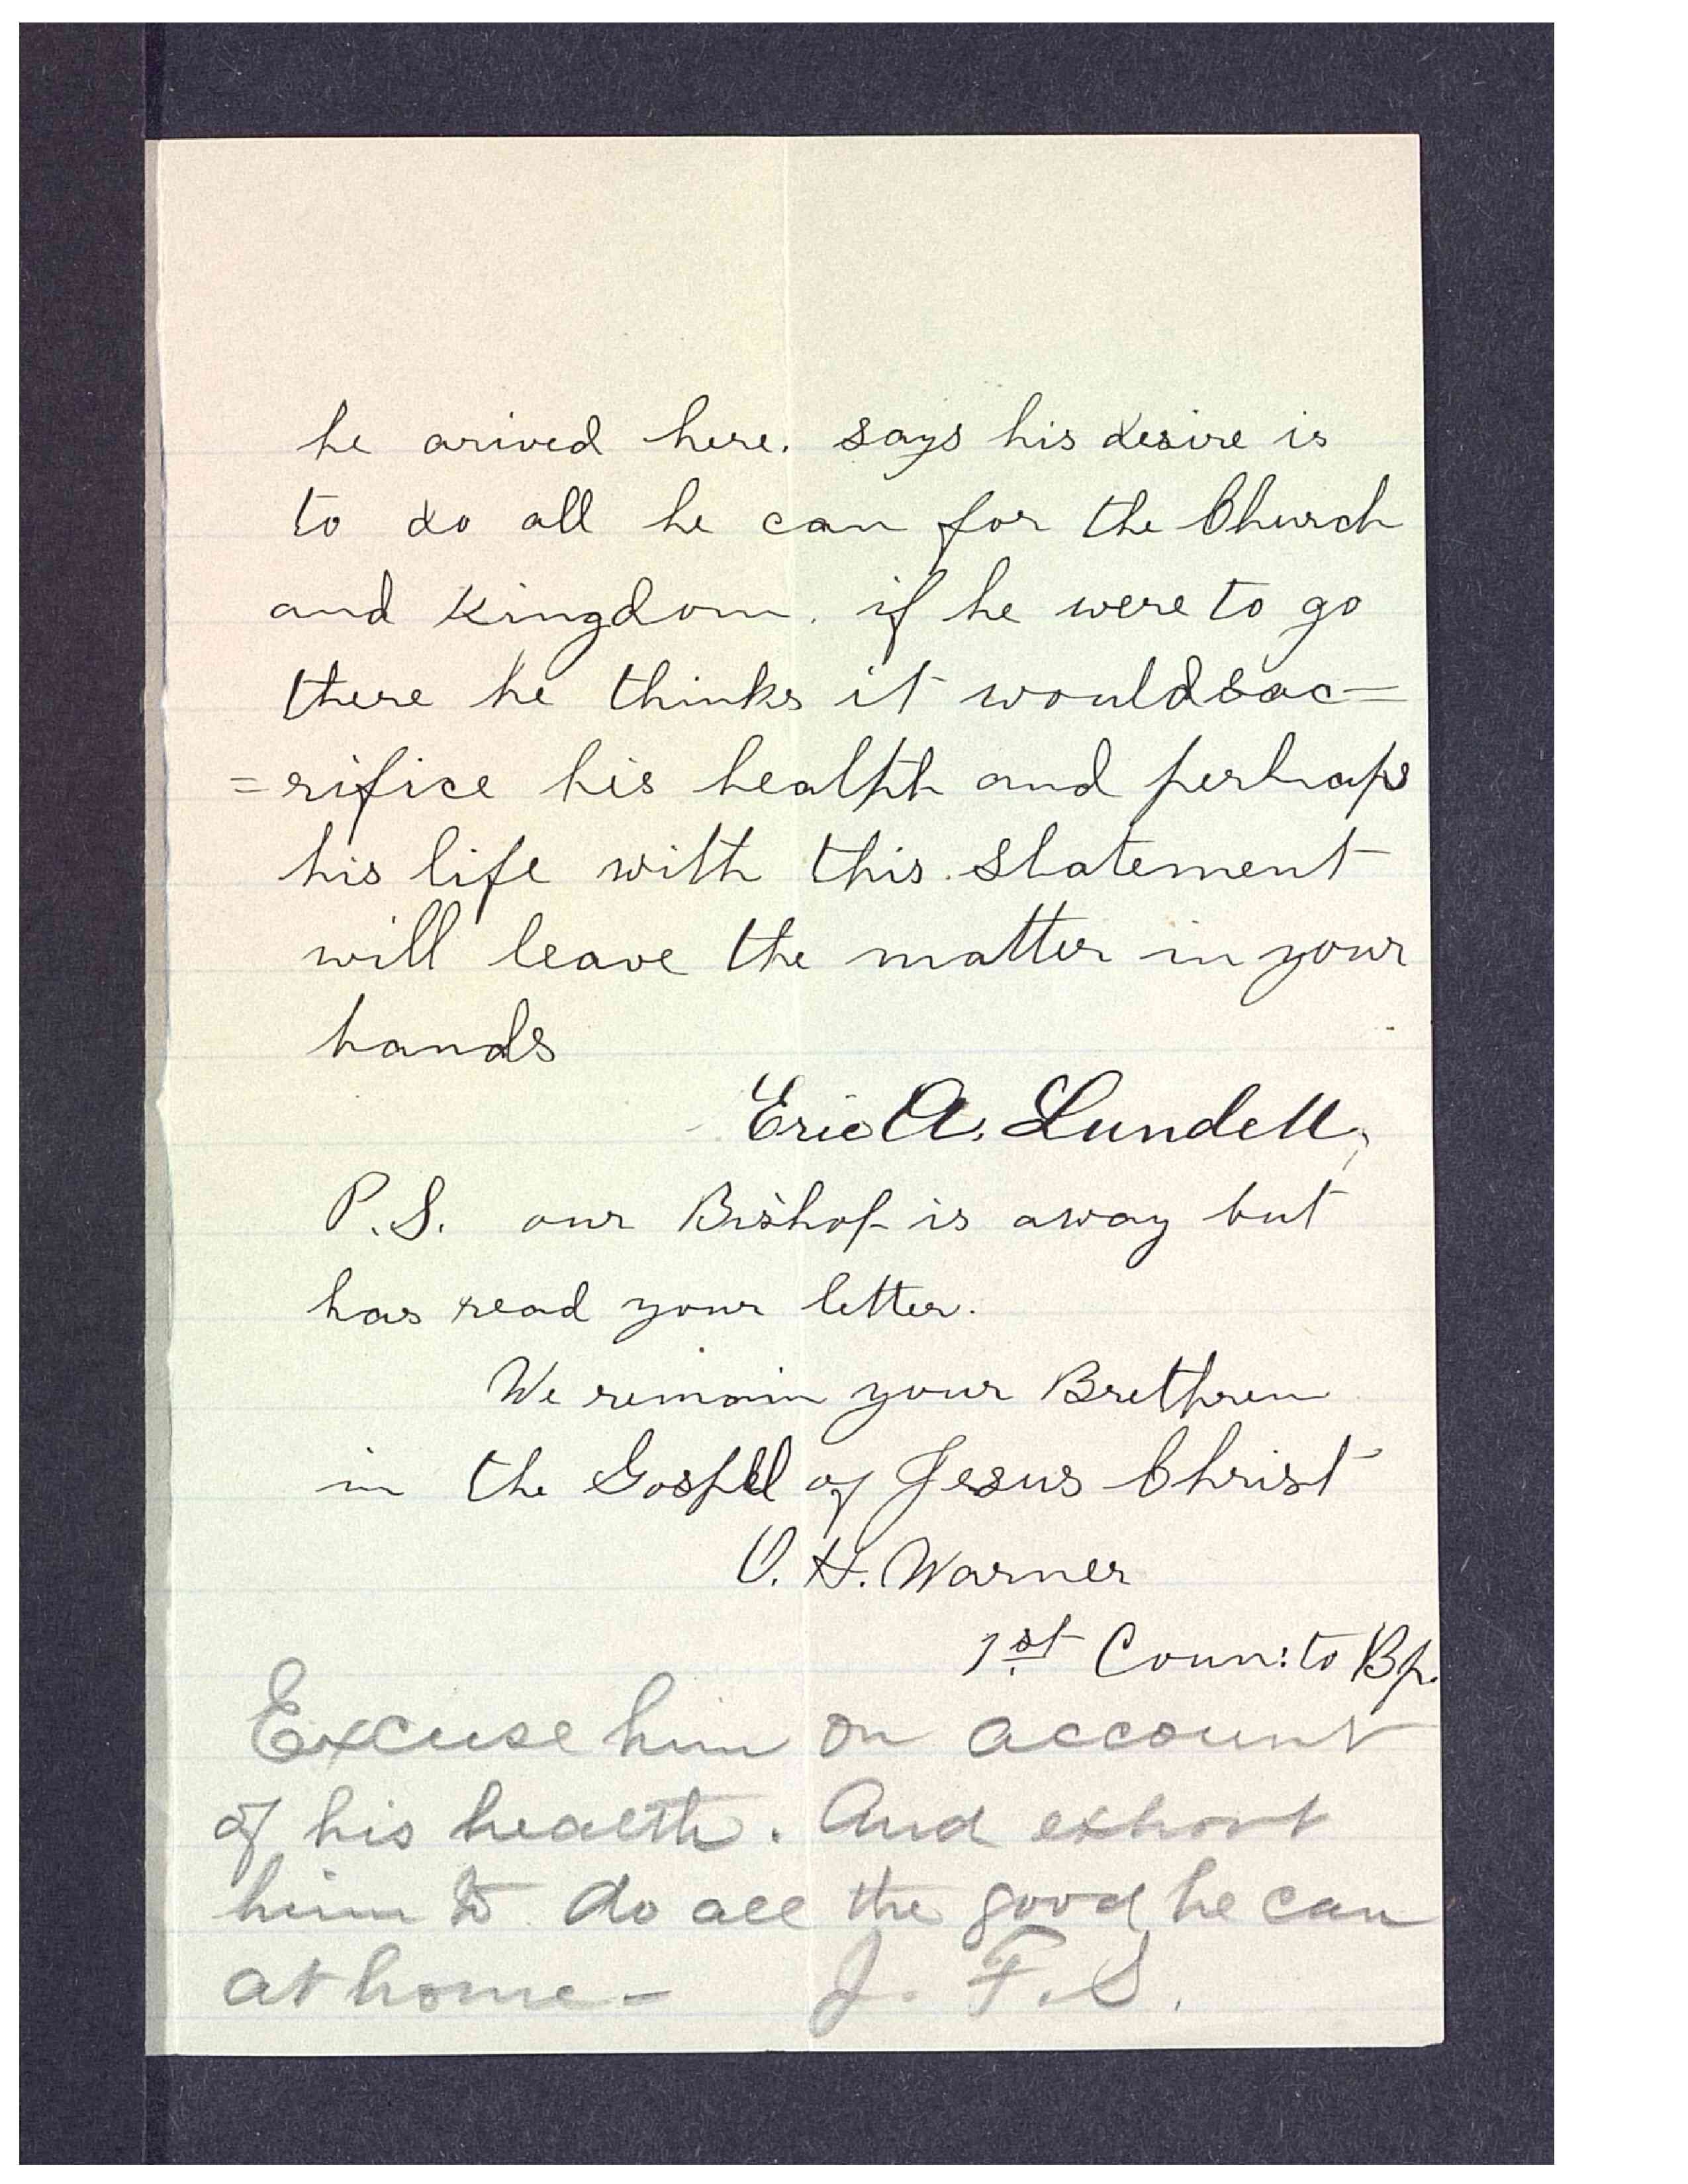 he arived here. says his desire is
to do all he can for the Church
and Kingdom. if he were to go
there he thinks it would sac=
=rifice his health and perhaps
his life with this statement
will leave the matter in your
hands
Eric A. Lundell,
P.S. our Bishop is away but
has read your letter.
We remain your Brethren
in the Gospel of Jesus Christ
O. H. Warner
1st Coun: to Bp.
Excuse him on account
of his health. And exhort
him to do all the good he can
at home - J. F. S.